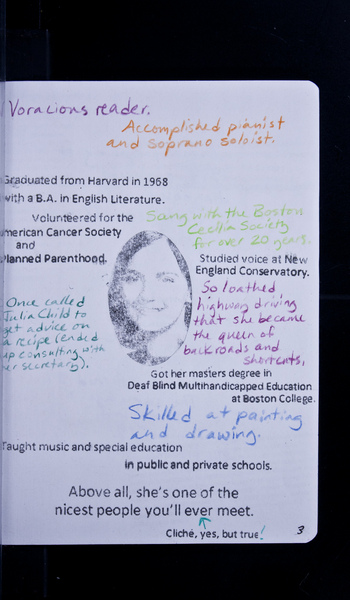 Voracious reader.
Accomplished pianist
and soprano soloist.
Graduated from Harvard in 1968
with a B.A. in English Literature.
Volunteered for the
American Cancer Society
and
Planned Parenthood.
Sang with the Boston
Cecilia Society
for over 20 years.
Studied voice at New
England Conservatory.
Once called
Julia Child to
get advice on
a recipe (ended
up consulting with
her secretary).
So loathed
highway driving
that she became
the queen of
backroads and
shortcuts.
Got her masters degree in
Deaf Blind Multihandicapped Education
at Boston College.
Skilled at painting
and drawing.
Taught music and special education
in public and private schools.
Above all, she's one of the
nicest people you'll ever meet.
Cliché, yes, but true!
3